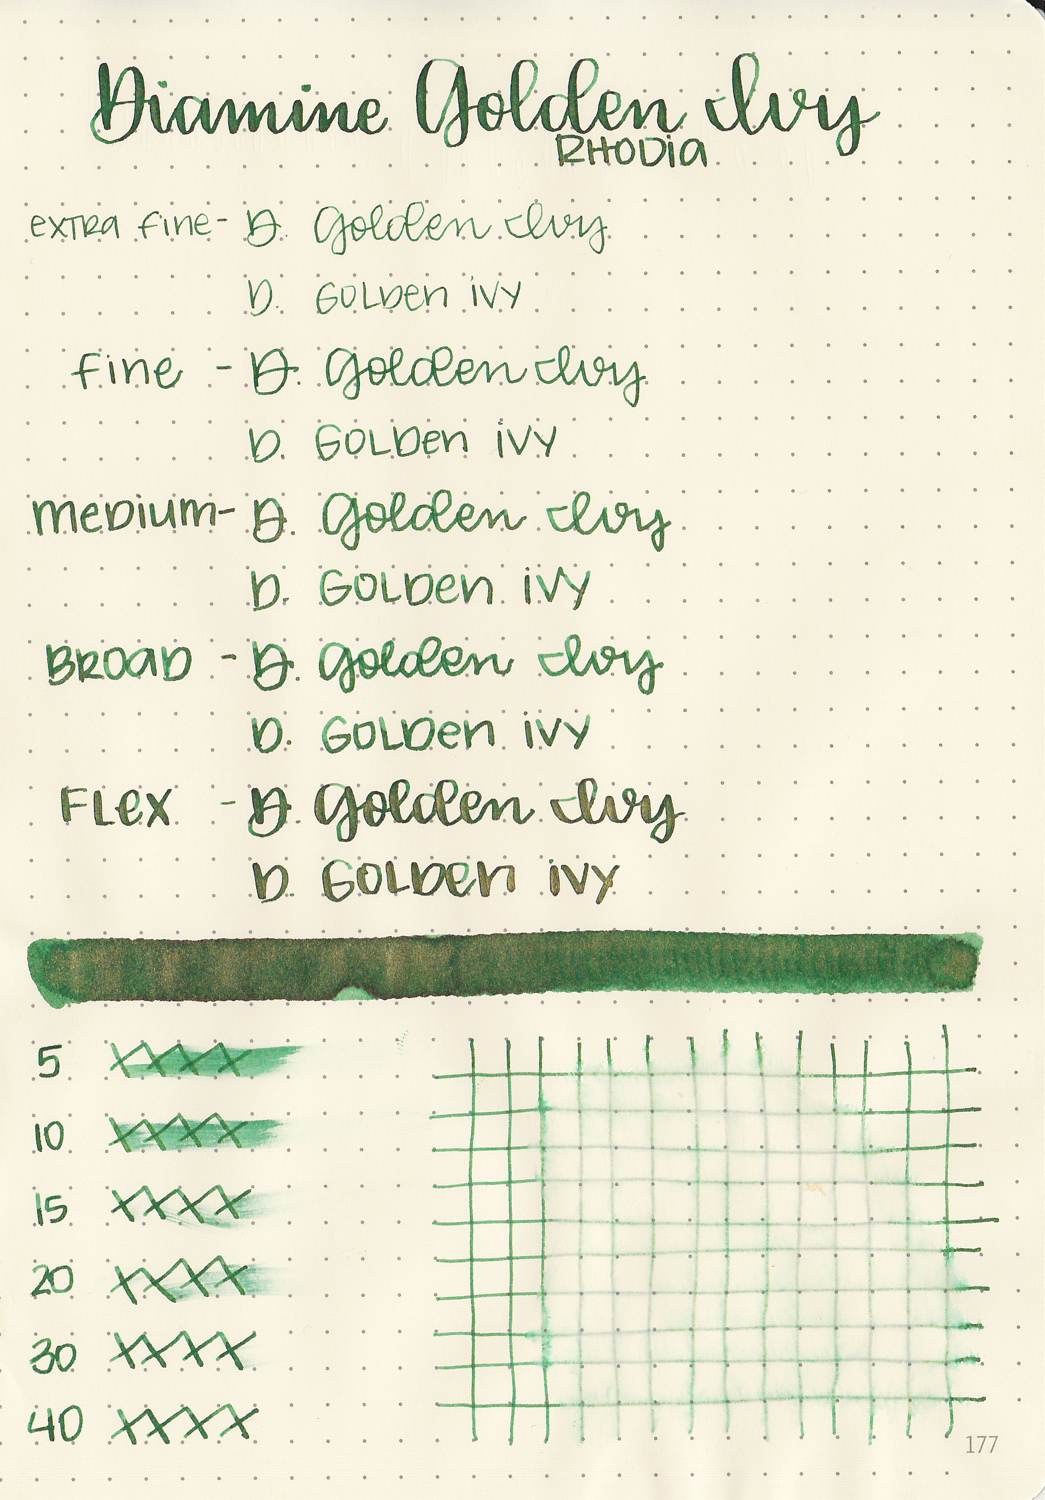 Diamine Golden Ivy
RHODia
exTRa fine - D. Golden Ivy
D. GOLDen iVY
fine - D. Golden Ivy
D. GOLDen iVY
meDium - D. Golden Ivy
D. GOLDen iVY
BROaD - D. Golden Ivy
D. GOLDen iVY
FLex - D. Golden Ivy
D. GOLDen iVY
5 XXXX
10 XXXX
15 XXXX
20 XXXX
30 XXXX
40 XXXX
177